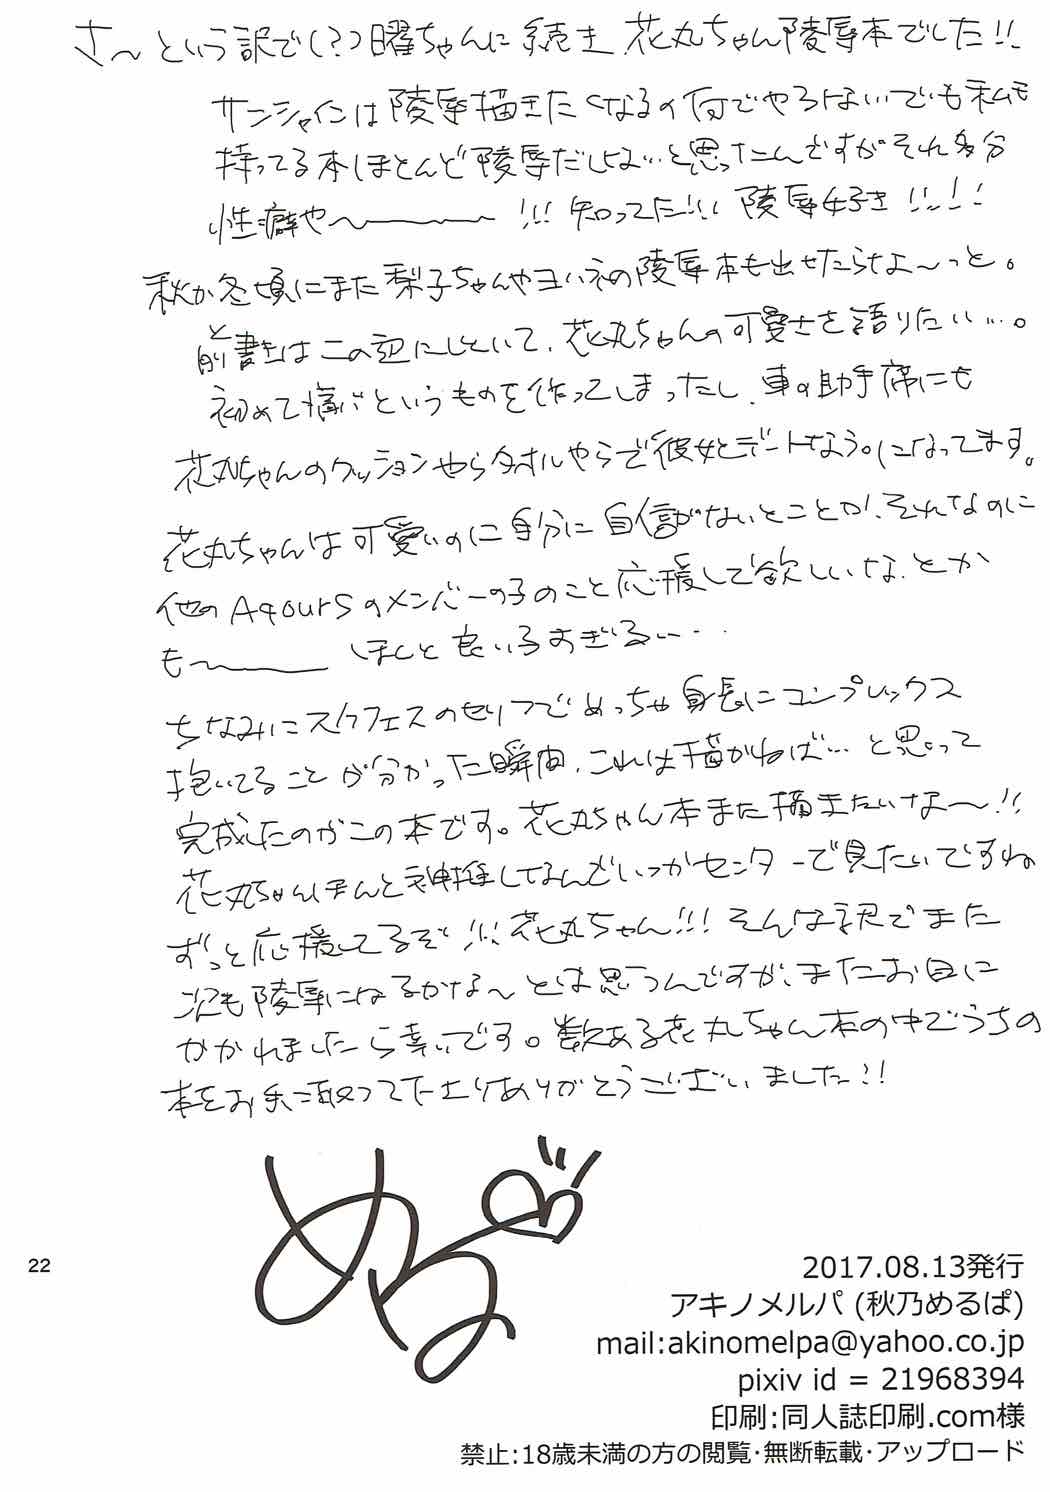 さ〜という訳で(?)曜ちゃんに続き花丸ちゃん陵辱本でした!!
サンシャインは陵辱描きたくなるの何でやろないでも私も
持ってる本ほとんど陵辱だしな…と思ったんですがそれ多分
性癖や〜!!! 知ってた!!! 陵辱好き!!!!
秋か冬頃にまた梨子ちゃんやヨハネの陵辱本も出せたらな〜っと。
と前書きはこの辺にしといて、花丸ちゃんの可愛さを語りたい…。
初めて痛バというものを作ってしまったし、車の助手席にも
花丸ちゃんのクッションやらタオルやらで彼女とデートなう。になってます。
花丸ちゃんは可愛いのに自分に自信がないとことか、それなのに
他のAqoursのメンバーの子のこと応援して欲しいな、とか
も〜 ほんと良い子すぎるい…
ちなみにスクフェスのセリフでめっちゃ身長にコンプレックス
抱いてることが分かった瞬間、これは描かねば…と思って
完成したのがこの本です。花丸ちゃん本また描きたいな〜!!
花丸ちゃんほんと神推してなんどいつかセンターで見たいですね
ずっと応援してるぞ!!! 花丸ちゃん!!! そんな訳でまた
次も陵辱になるかな〜とは思うんですが、またお目に
かかれましたら幸いです。数ある花丸ちゃん本の中でうちの
本をお手に取って下さりありがとうございました!!
める
22
2017.08.13発行
アキノメルパ (秋乃めるぱ)
mail:akinomelpa@yahoo.co.jp
pixiv id = 21968394
印刷:同人誌印刷.com様
禁止:18歳未満の方の閲覧・無断転載・アップロード